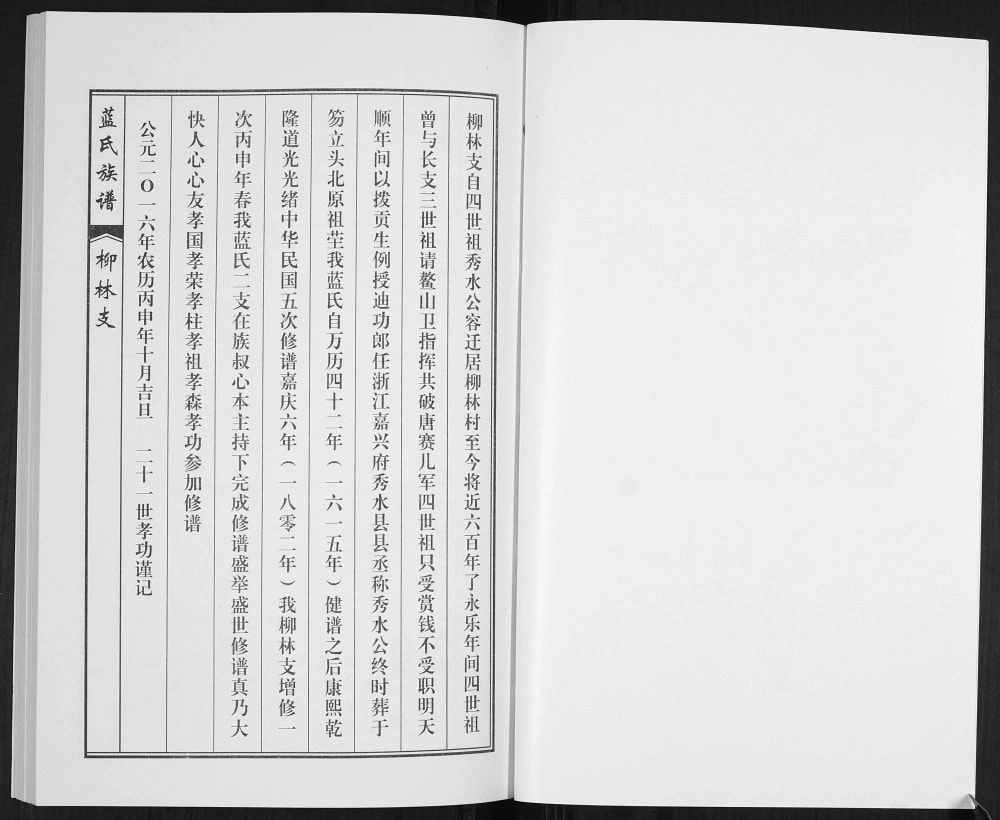 柳林支自四世祖秀水公容迁居柳林村至今将近六百年了永乐年间四世祖
曾与长支三世祖请鳌山卫指挥共破唐赛儿军四世祖只受赏钱不受职明天
顺年间以拨贡生例授迪功郎任浙江嘉兴府秀水县县丞称秀水公终时葬于
笏立头北原祖茔我蓝氏自万历四十二年（一六一五年）健谱之后康熙乾
隆道光光绪中华民国五次修谱嘉庆六年（一八零二年）我柳林支增修一
次丙申年春我蓝氏二支在族叔心本主持下完成修谱盛举盛世修谱真乃大
快人心心友孝国孝荣孝柱孝祖孝森孝功参加修谱
公元二〇一六年农历丙申年十月吉旦 二十一世孝功谨记
蓝氏族谱
柳林支